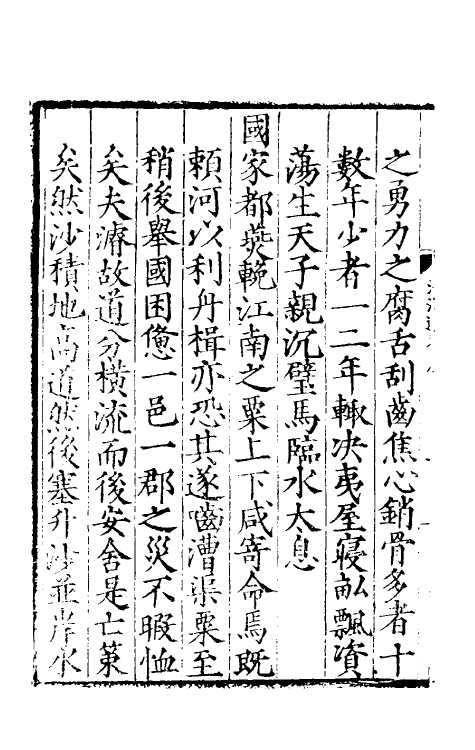 之勇力之腐舌刮齒焦心銷骨多者十
數年少者一二年輙决夷屋寢畆飄資
蕩生天子親沉璧馬臨水太息
國家都燕輓江南之粟上下咸寄命焉既
頼河以利舟楫亦恐其遂嚙漕渠粟至
稍後舉國困憊一邑一郡之災不暇恤
矣夫濬故道分橫流而後安舍是亡策
矣然沙積地高道然後塞升沙並岸水